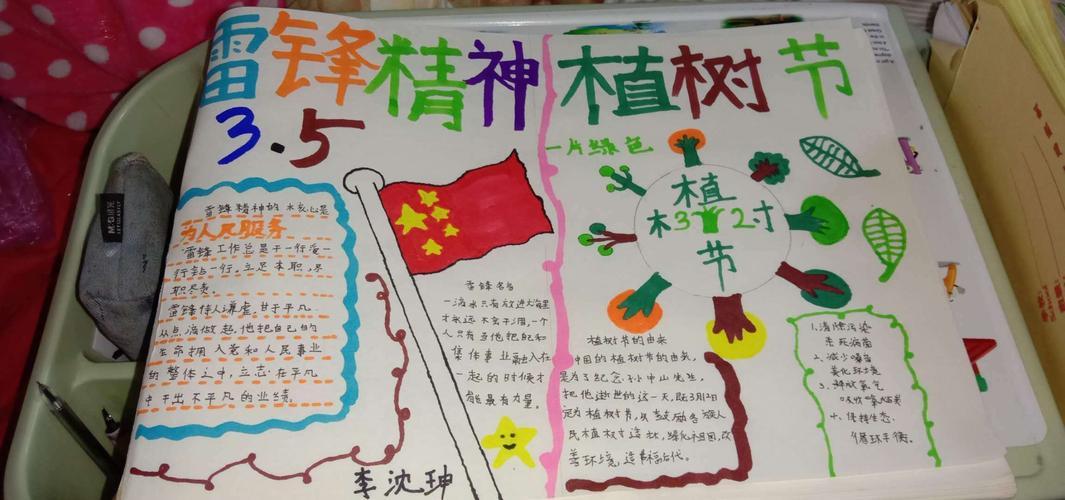 雷锋精神
3.5
雷锋精神的核心是
为人民服务
雷锋工作总是干一行爱一
行钻一行。立足本职,尽
职尽责。
雷锋待人谦虚,甘于平凡
从点滴做起,他把自己的
生命拥入党和人民事业
的整体之中,立志在平凡
中干出不平凡的业绩。
雷锋名言
一滴水只有放进大海里
才永远不会干涸,一个
人只有当他把自己和
集体事业融入在
一起的时候才
能最有力量。
李沈珅
植树节
一片绿色
植
木3 12寸
节
植树节的由来
中国的植树节的由来,
是为了纪念孙中山先生,
把他逝世的这一天,既3月12日
定为植树节,以鼓励各族人
民植树造林,绿化祖国,改
善环境,造福后代。
1.清除污染
杀死病菌
2.减少噪音
美化环境
3.释放氧气
吸收
4.保持生态
循环平衡。